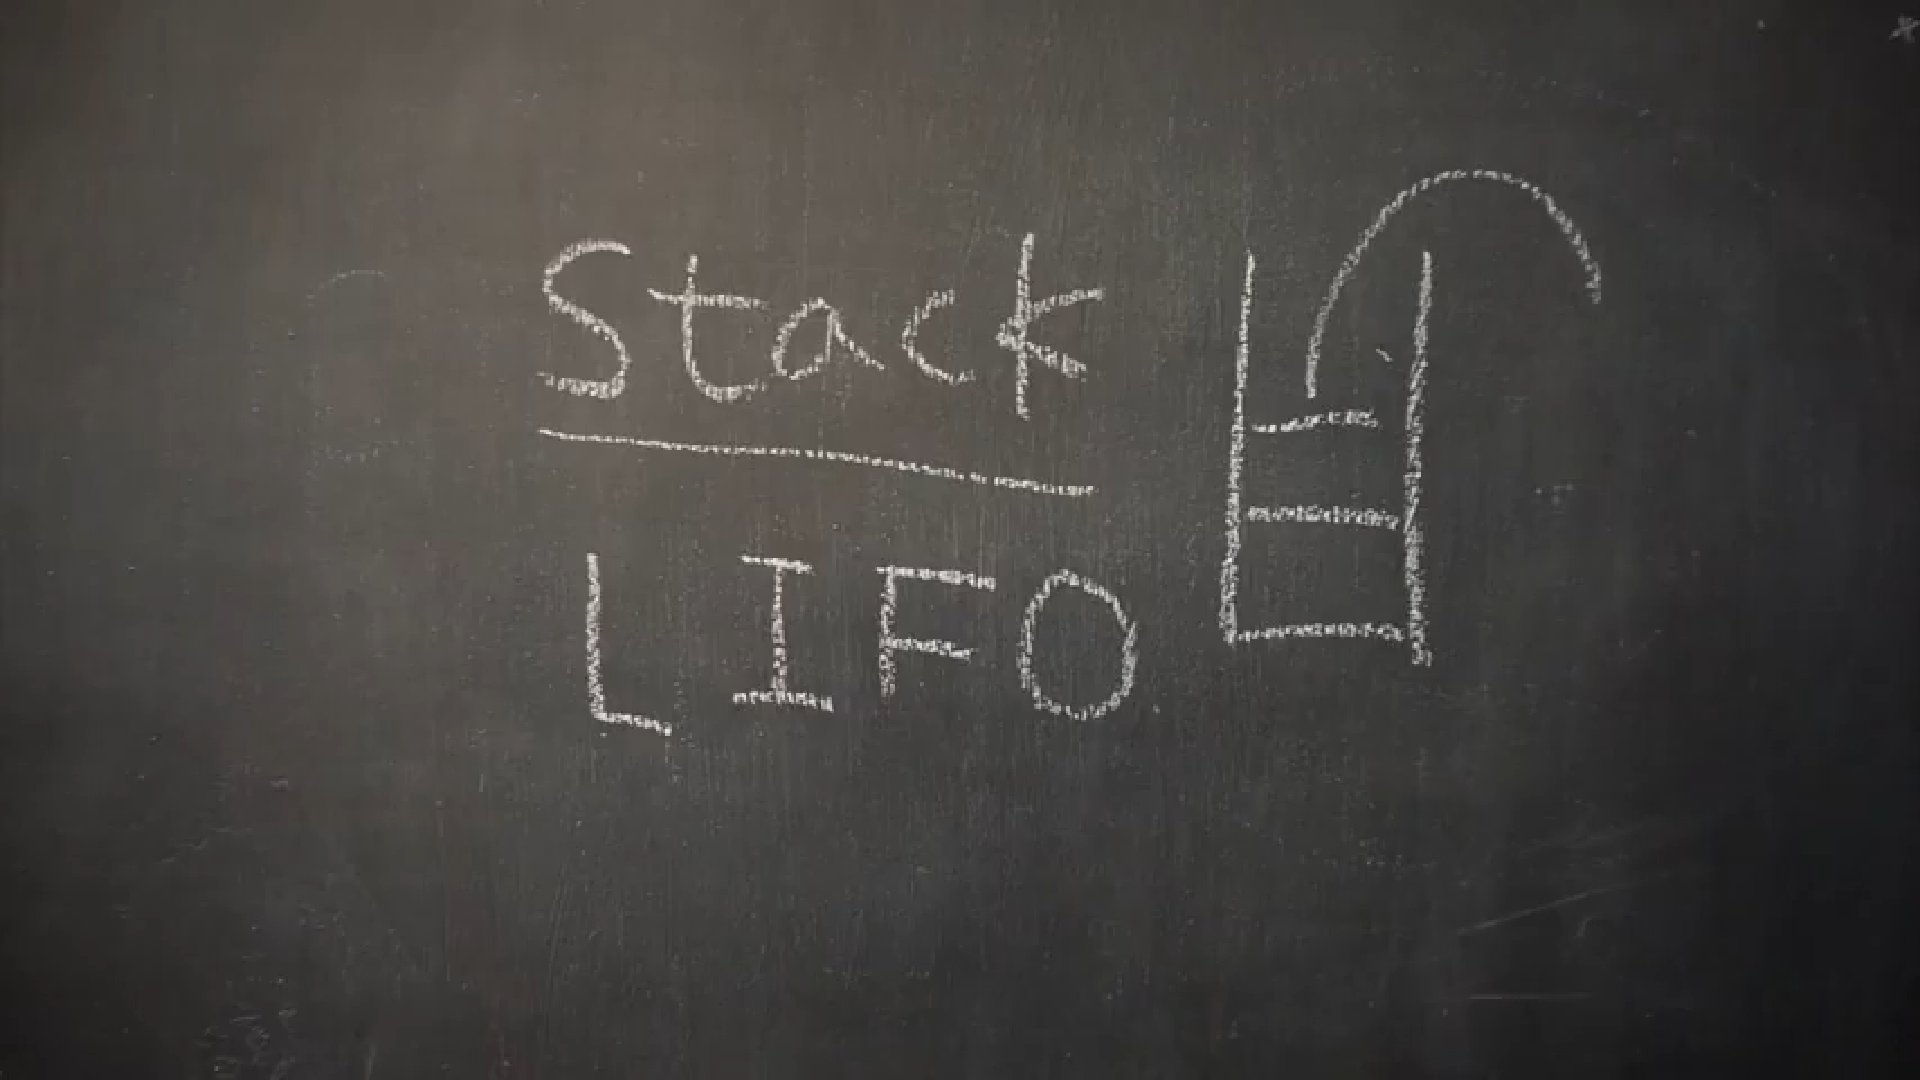 Stack
LIFO